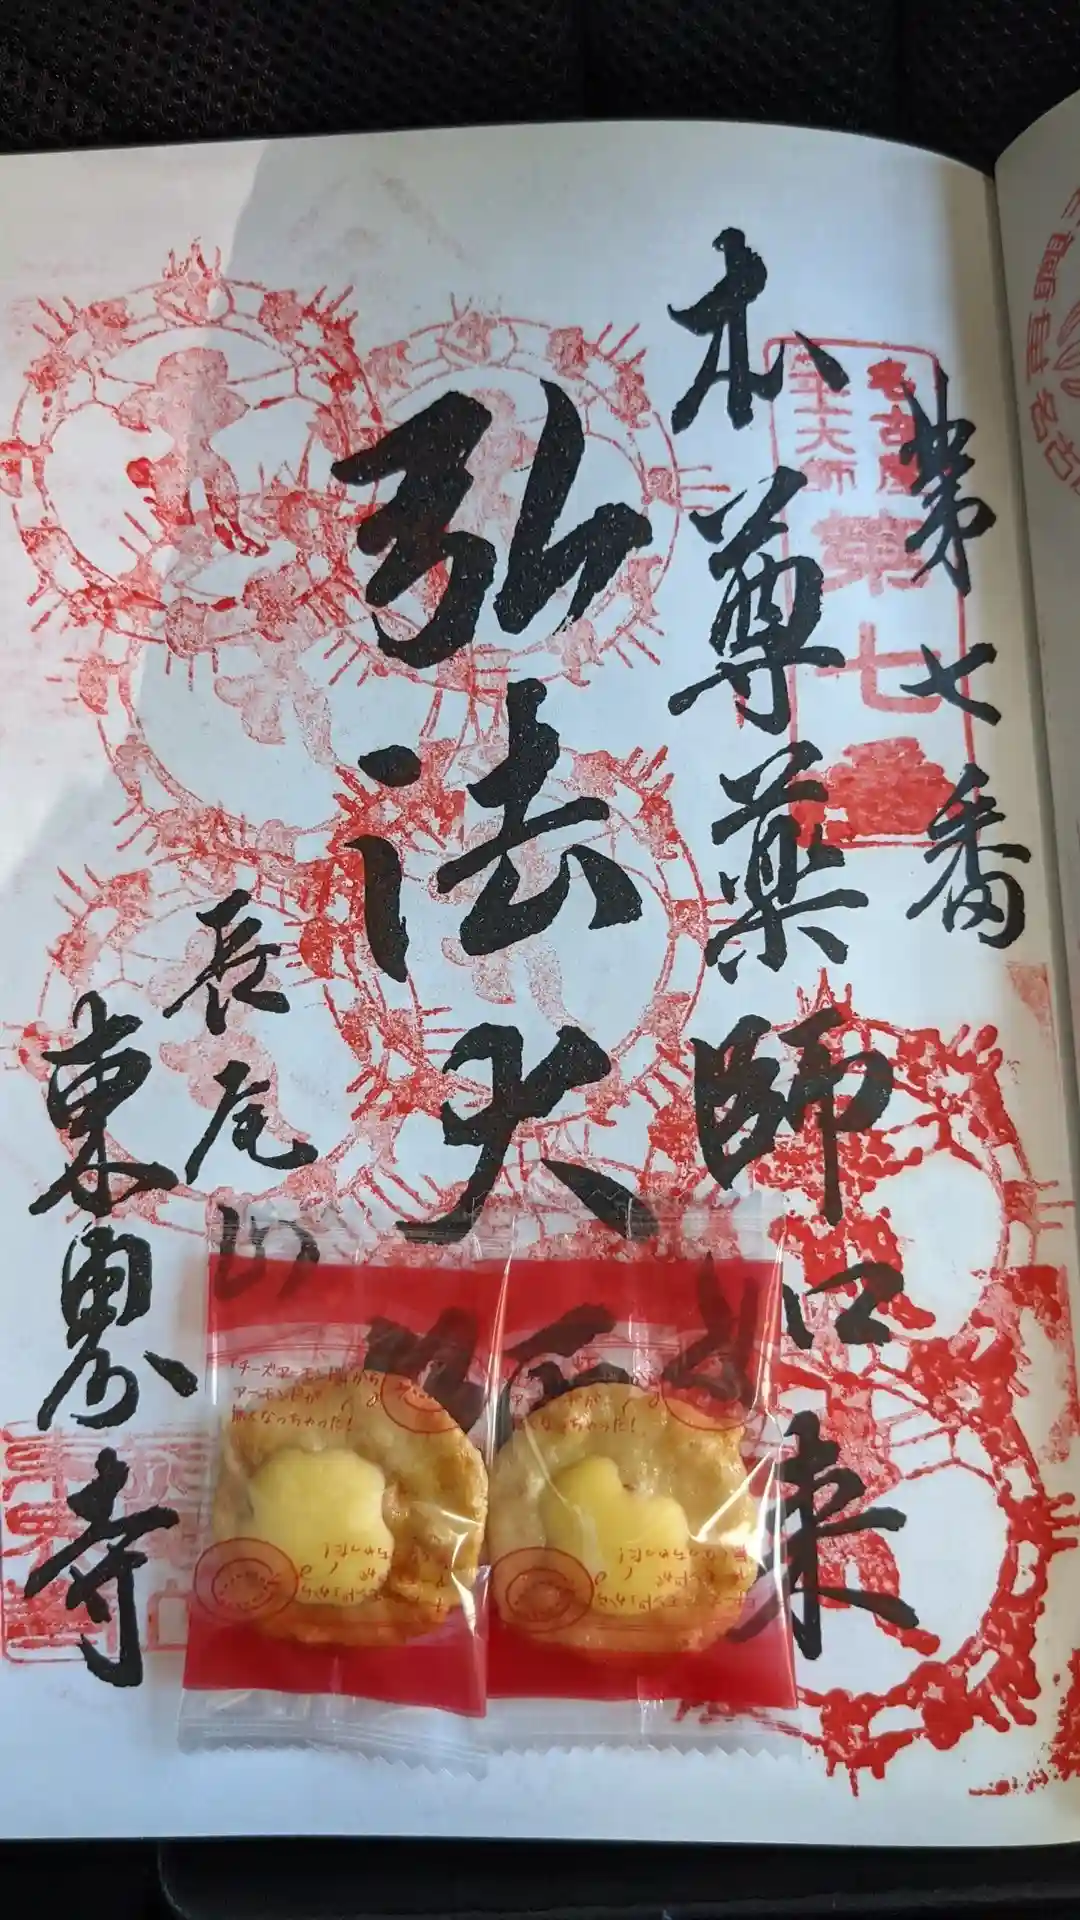 第七番
名古屋
十大師
第七番
本尊薬師如来
弘法大師
長尾山
東界寺
チーズアーモンドから
アーモンドが
無くなっちゃった!